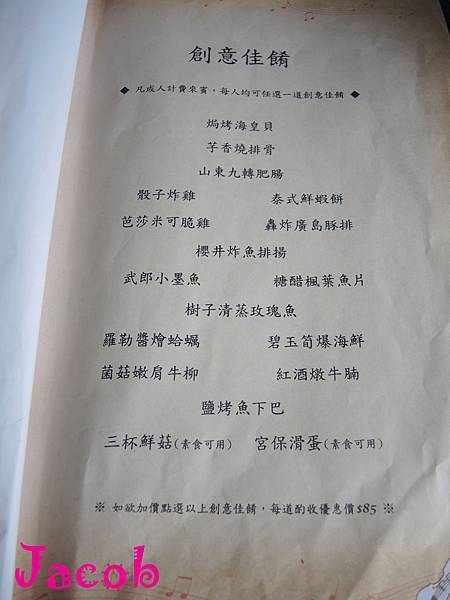 創意佳餚
◆ 凡成人計費來賓，每人均可任選一道創意佳餚 ◆
焗烤海皇貝
芋香燒排骨
山東九轉肥腸
骰子炸雞 泰式鮮蝦餅
芭莎米可脆雞 轟炸廣島豚排
櫻井炸魚排揚
武郎小墨魚 糖醋楓葉魚片
樹子清蒸玫瑰魚
羅勒醬燴蛤蠣 碧玉筍爆海鮮
菌菇嫩肩牛柳 紅酒燉牛腩
鹽烤魚下巴
三杯鮮菇(素食可用) 宮保滑蛋(素食可用)
※ 如欲加價點選以上創意佳餚，每道酌收優惠價$85 ※
Jacob